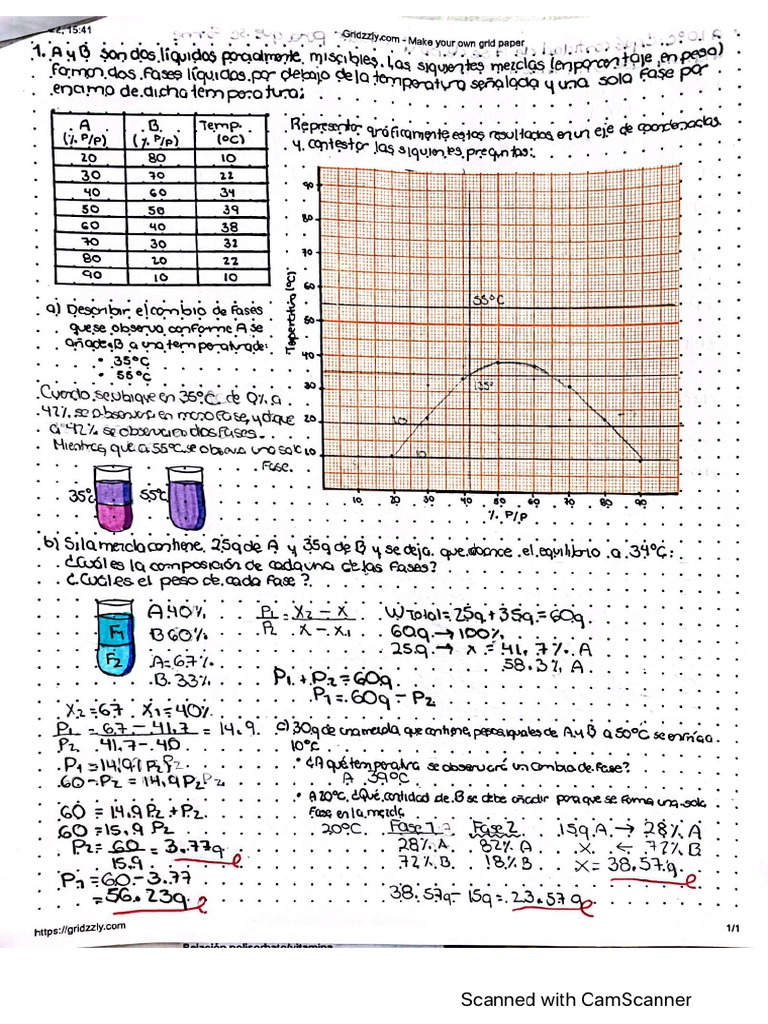 22, 15:41
Gridzzly.com - Make your own grid paper
1. A y B son dos líquidos parcialmente miscibles. Las siguientes mezclas (en porcentaje en peso)
forman dos fases líquidas por debajo de la temperatura señalada y una sola fase por
encima de dicha temperatura:
A (% P/P) B (% P/P) Temp. (°C)
20 80 10
30 70 22
40 60 34
50 50 39
60 40 38
70 30 32
80 20 22
90 10 10
Representar gráficamente estos resultados en un eje de coordenadas
y contestar las siguientes preguntas:
90
80
70
60
50
40
30
20
10
Temperatura (°C)
55°C
35°
10
10
10 20 30 40 50 60 70 80 90
% P/P
a) Describir el cambio de fases
que se observa conforme A se
añade B a una temperatura de:
• 35°C
• 55°C
Cuando se ubique en 35°C de 0% a
42% se observa en monofase, ya que
a 42% se observaran dos fases.
Mientras que a 55°C se observa una sola
fase.
35°C 55°C
b) Si la mezcla contiene 25g de A y 35g de B y se deja que alcance el equilibrio a 34°C:
¿Cuál es la composición de cada una de las fases?
¿Cuál es el peso de cada fase?
F1
F2
A 40%
B 60%
A = 67%
B 33%
P1/P2 = X2 - X / X - X1
W Total = 25g + 35g = 60g
60g → 100%
25g → x = 41.7% A
58.3% A
P1 + P2 = 60g
P1 = 60g - P2
X2 = 67 X1 = 40%
P1/P2 = 67 - 41.7 / 41.7 - 40 = 14.9
P1 = 14.9 P2
60 - P2 = 14.9 P2
60 = 14.9 P2 + P2
60 = 15.9 P2
P2 = 60/15.9 = 3.77g
P1 = 60 - 3.77
= 56.23g
c) 30g de una mezcla que contiene pesos iguales de A y B a 50°C se enfría a
10°C
• ¿A qué temperatura se observará un cambio de fase?
A 39°C
• A 20°C, ¿Qué cantidad de B se debe añadir para que se forme una sola
fase en la mezcla
20°C Fase 1 Fase 2
28% A 82% A
72% B 18% B
15g A → 28% A
x ← 72% B
x = 38.57g
38.57g - 15g = 23.57g
https://gridzzly.com
1/1
Relación polisorbato/vitamina
Scanned with CamScanner